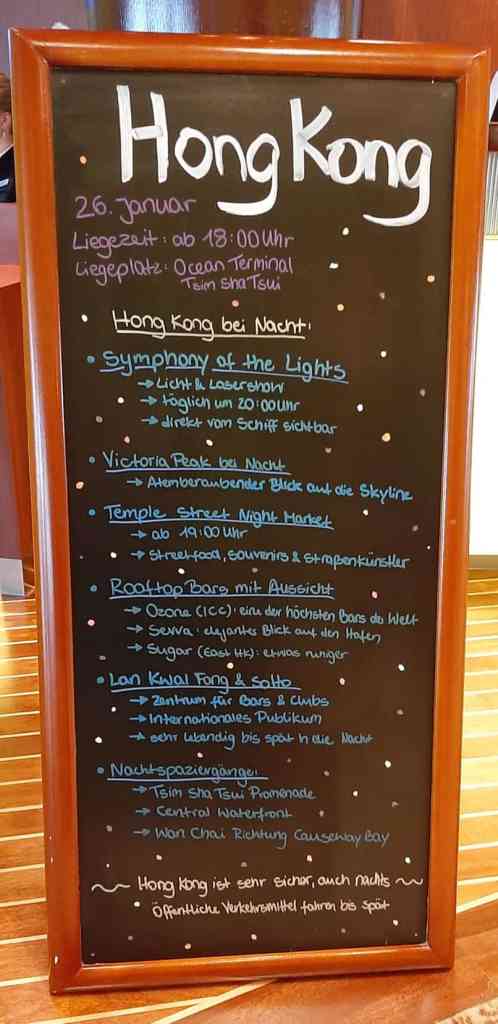 Hong Kong
26. Januar
Liegezeit: ab 18:00 Uhr
Liegeplatz: Ocean Terminal
Tsim Sha Tsui
Hong Kong bei Nacht:
• Symphony of the Lights
→ Licht & Lasershow
→ täglich um 20:00 Uhr
→ direkt vom Schiff sichtbar
• Victoria Peak bei Nacht
→ Atemberaubender Blick auf die Skyline
• Temple Street Night Market
→ ab 19:00 Uhr
→ Streetfood, Souvenirs & Straßenkünstler
• Rooftop Bars mit Aussicht
→ Ozone (ICC): eine der höchsten Bars da Welt
→ Sevva: elegantes Blick auf den Hafen
→ Sugar (East HK): etwas ruhiger
• Lan Kwai Fong & SoHo
→ Zentrum für Bars & Clubs
→ Internationales Publikum
→ sehr lebendig bis spät in die Nacht
• Nachtspaziergänge:
→ Tsim Sha Tsui Promenade
→ Central Waterfront
→ Wan Chai Richtung Causeway Bay
~ Hong Kong ist sehr sicher, auch nachts ~
Öffentliche Verkehrsmittel fahren bis spät